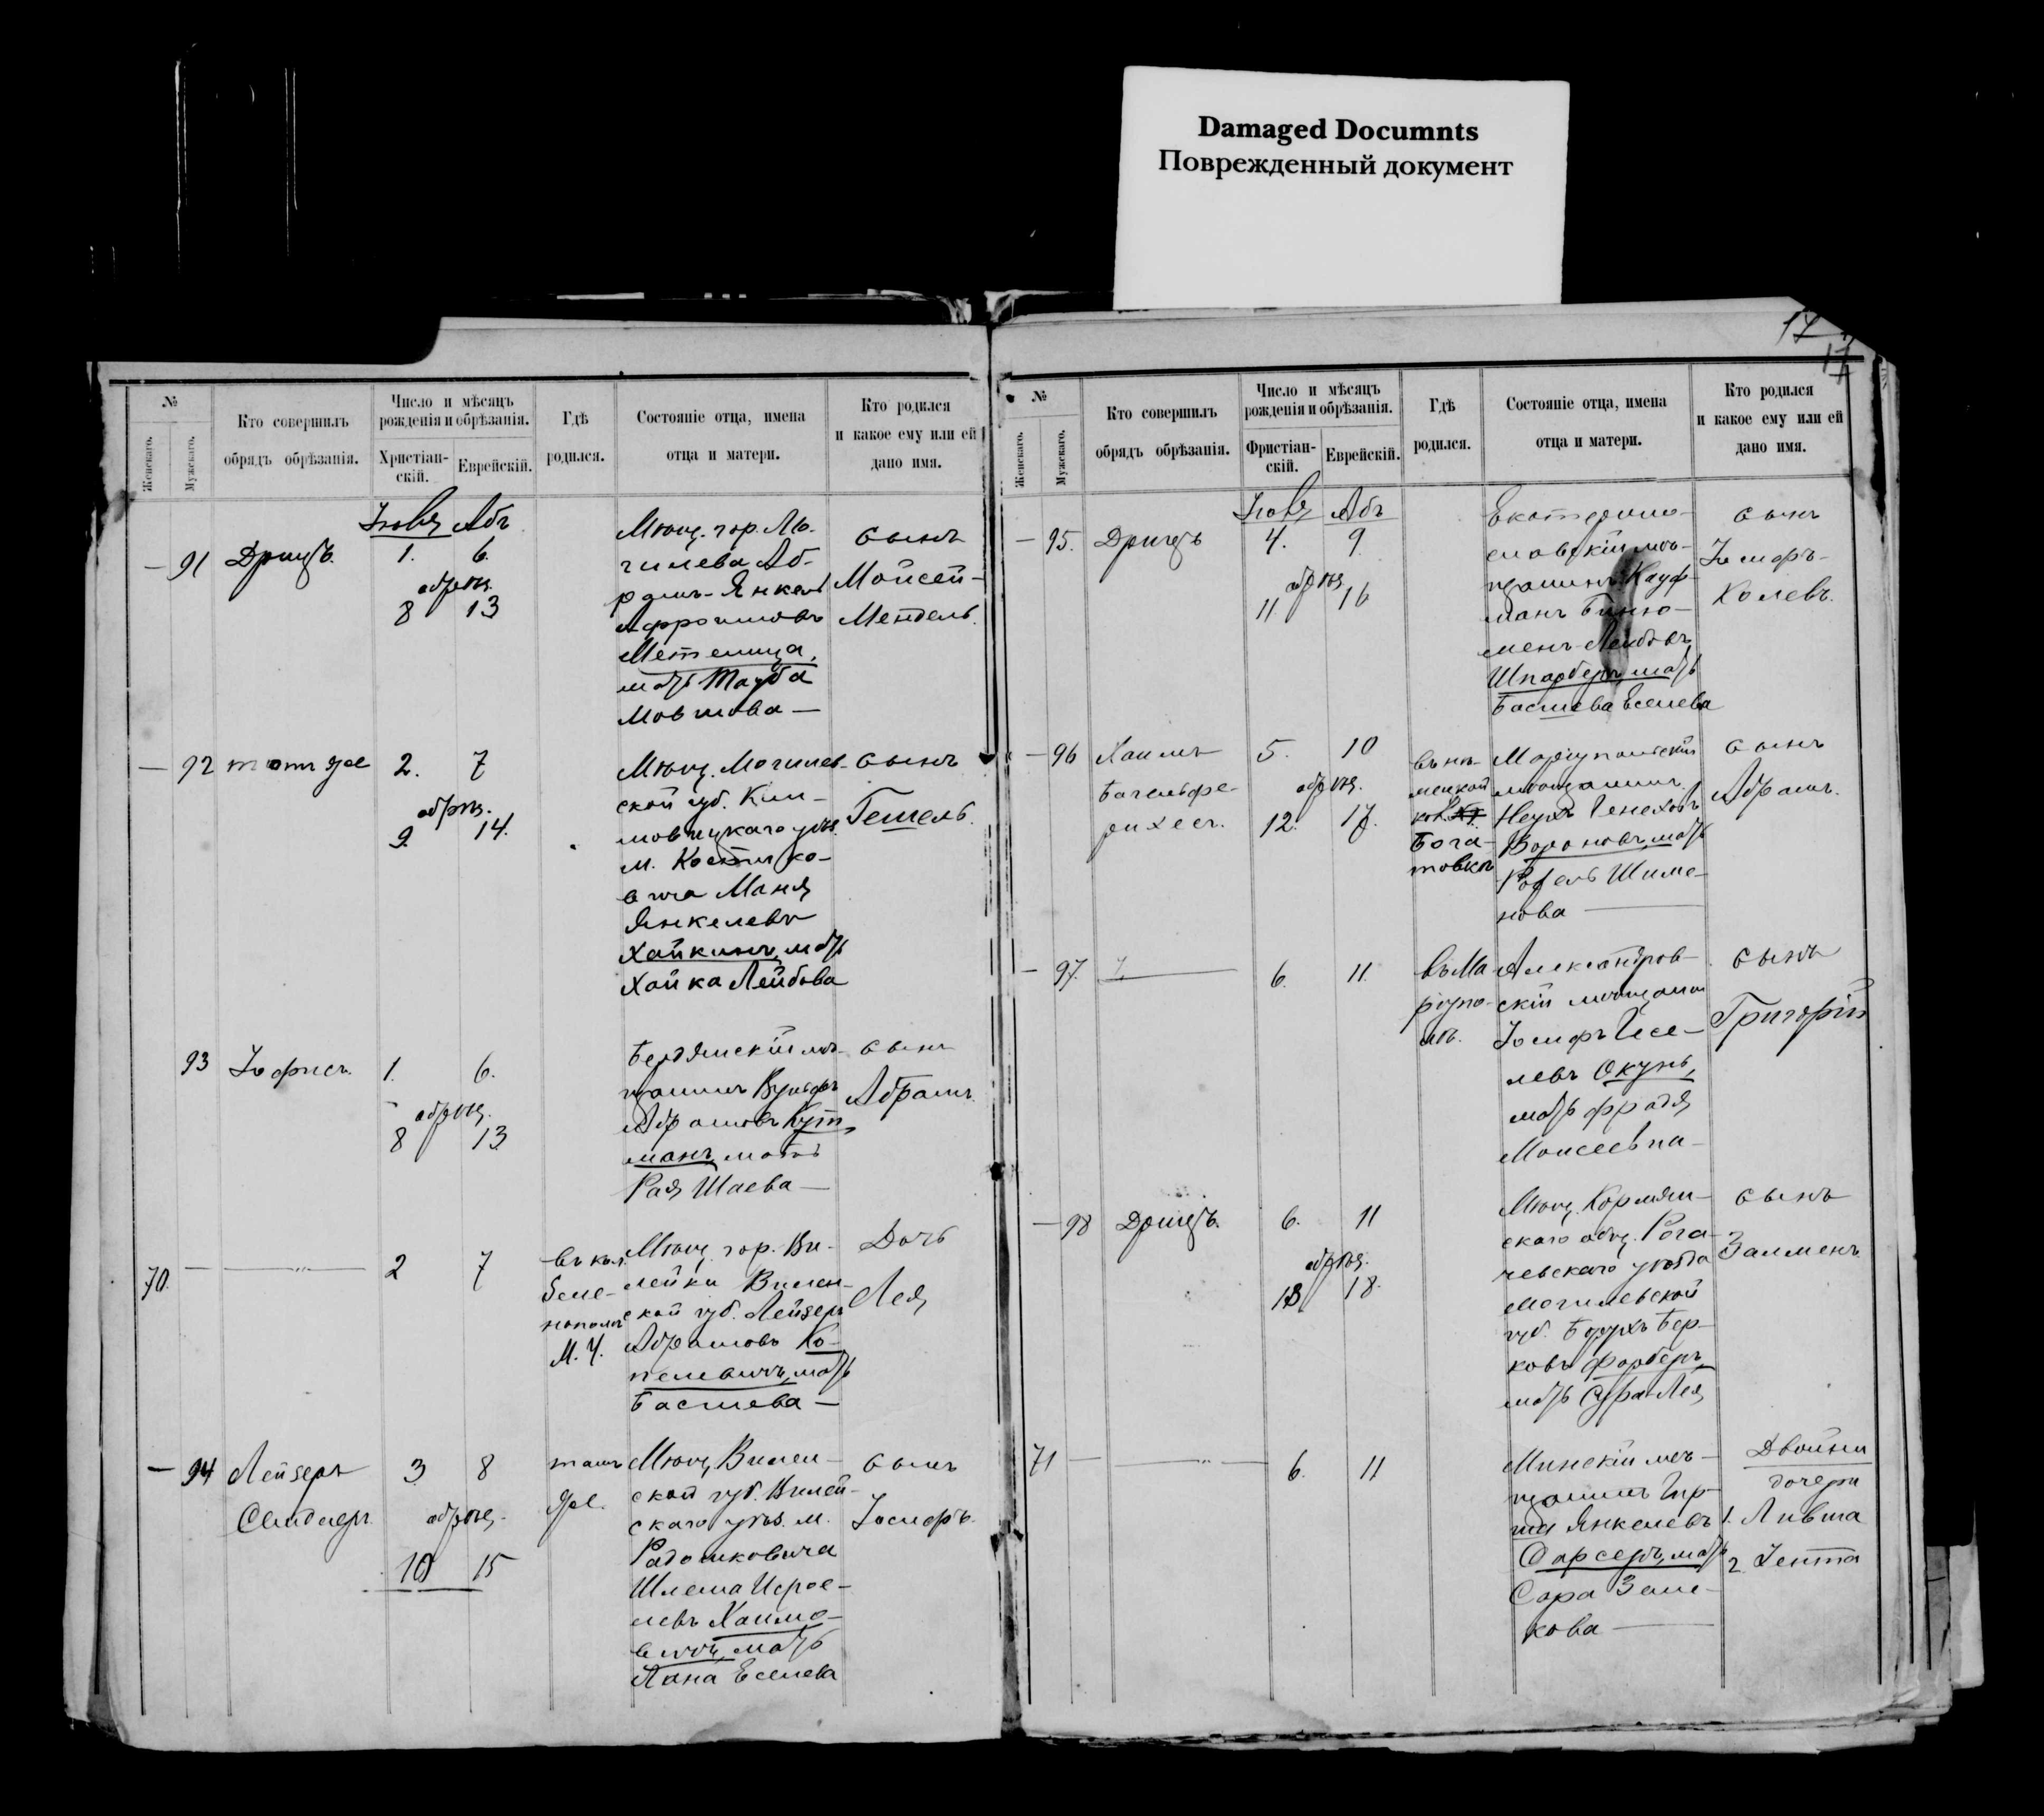 Damaged Documnts
Поврежденный документ
17
17
№
Женскаго.
Мужскаго.
Кто совершилъ
обрядъ обрѣзанія.
Число и мѣсяцъ
рожденія и обрѣзанія.
Христіан-
скій.
Еврейскій.
Гдѣ
родился.
Состояніе отца, имена
отца и матери.
Кто родился
и какое ему или ей
дано имя.
Абъ
— 91 Дрицъ.
1. 6.
обрѣз.
8 13
Мѣщ. гор. Мо-
гилева Аб-
рамъ-Янкель
Афроимовъ
Метелица,
мать Тауба
Мовшова —
сынъ
Мойсей-
Мендель.
— 92 тотъ же
2. 7
обрѣз.
9. 14.
Мѣщ. Могилев-
ской губ. Кли-
мовицкаго уѣз.
м. Костюко-
вича Маня
Янкелевъ
Хайкинъ, мать
Хайка Лейбова
сынъ
Гешель.
93 Іофисъ.
1. 6.
обрѣз.
8 13
Бердянскій мѣ-
щанинъ Вульфъ
Абрамовъ Кут-
манъ, мать
Рая Шаева —
сынъ
Абрамъ.
70. — —„—
2 7
въ кол.
Зеле-
нополь
М. У.
Мѣщ. гор. Ви-
лейки Вилен-
ской губ. Лейзеръ
Абрамовъ Ко-
пелевичъ, мать
Басшева —
Дочь
Лея
— 94 Лейзеръ
Сандлеръ.
3 8
обрѣз.
10 15
тамъ
же.
Мѣщ. Вилен-
ской губ. Вилей-
скаго уѣз. м.
Радошковича
Шлема Исрое-
левъ Хаимо-
вичъ, мать
Хана Еселева
сынъ
Іосифъ.
№
Женскаго.
Мужскаго.
Кто совершилъ
обрядъ обрѣзанія.
Число и мѣсяцъ
рожденія и обрѣзанія.
Фристіан-
скій.
Еврейскій.
Гдѣ
родился.
Состояніе отца, имена
отца и матери.
Кто родился
и какое ему или ей
дано имя.
Абъ
— 95. Дрицъ
4. 9.
обрѣз.
11 16
Екатерино-
славскій мѣ-
щанинъ Кауф-
манъ Биню-
менъ-Лейбовъ
Шпарберъ, мать
Басшева Еселева
сынъ
Іосифъ-
Колевъ.
— 96 Хаимъ
5. 10
обрѣз.
12. 17.
въ нѣ-
мецкой
кол.
Бога-
товкѣ
Маріупольскій
мѣщанинъ
Неухъ Генеховъ
Вороновъ, мать
Рохель Шиме-
нова —
сынъ
Абрамъ.
— 97.
6. 11.
въ Ма-
ріупо-
лѣ.
Александров-
скій мѣщанинъ
Іосифъ Исе-
левъ Окунь,
мать Фрадя
Моисеевна —
сынъ
Григорій
— 98 Дрицъ.
6. 11
обрѣз.
13 18.
Мѣщ. Кормян-
скаго общ. Рога-
чевскаго уѣзда
Могилевской
губ. Борухъ Бер-
ковъ Фарберъ,
мать Сура-Лея
сынъ
Залменъ.
71 — —„—
6. 11
Минскій мѣ-
щанинъ Гир-
ша Янкелевъ
мать
Сара Зели-
кова —
Двойни
дочери
1. Ливша
2. Зентa